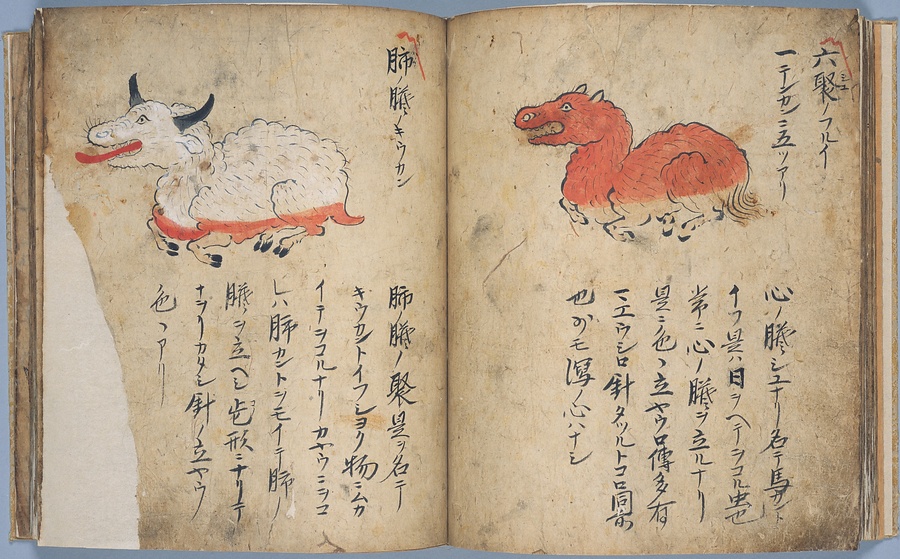 六聚ノフルイ
一テンカンニ五ツアリ
心ノ臓シユナリ名テ馬カント
イフ是ハ日ヲヘテヲコル虫也
常ニ心ノ臓ヲ立ルナリ
是ニ色々立ヤウロ傳多有
ウシロ針タツルトコロ同前
也 少モ瀉ノ心ハナシ
肺ノ臓ノキウカン
肺ノ臓ノ聚是ヲ名テ
キウカントイフシヨリ物ニムカ
イテヲコルナリカヤウニヲコ
レハ肺カントシモイテ肺ノ
臓ヲ立ヘシ 形ニナリテ
ナヲリカタシ針ノ立ヤウ
色々アリ